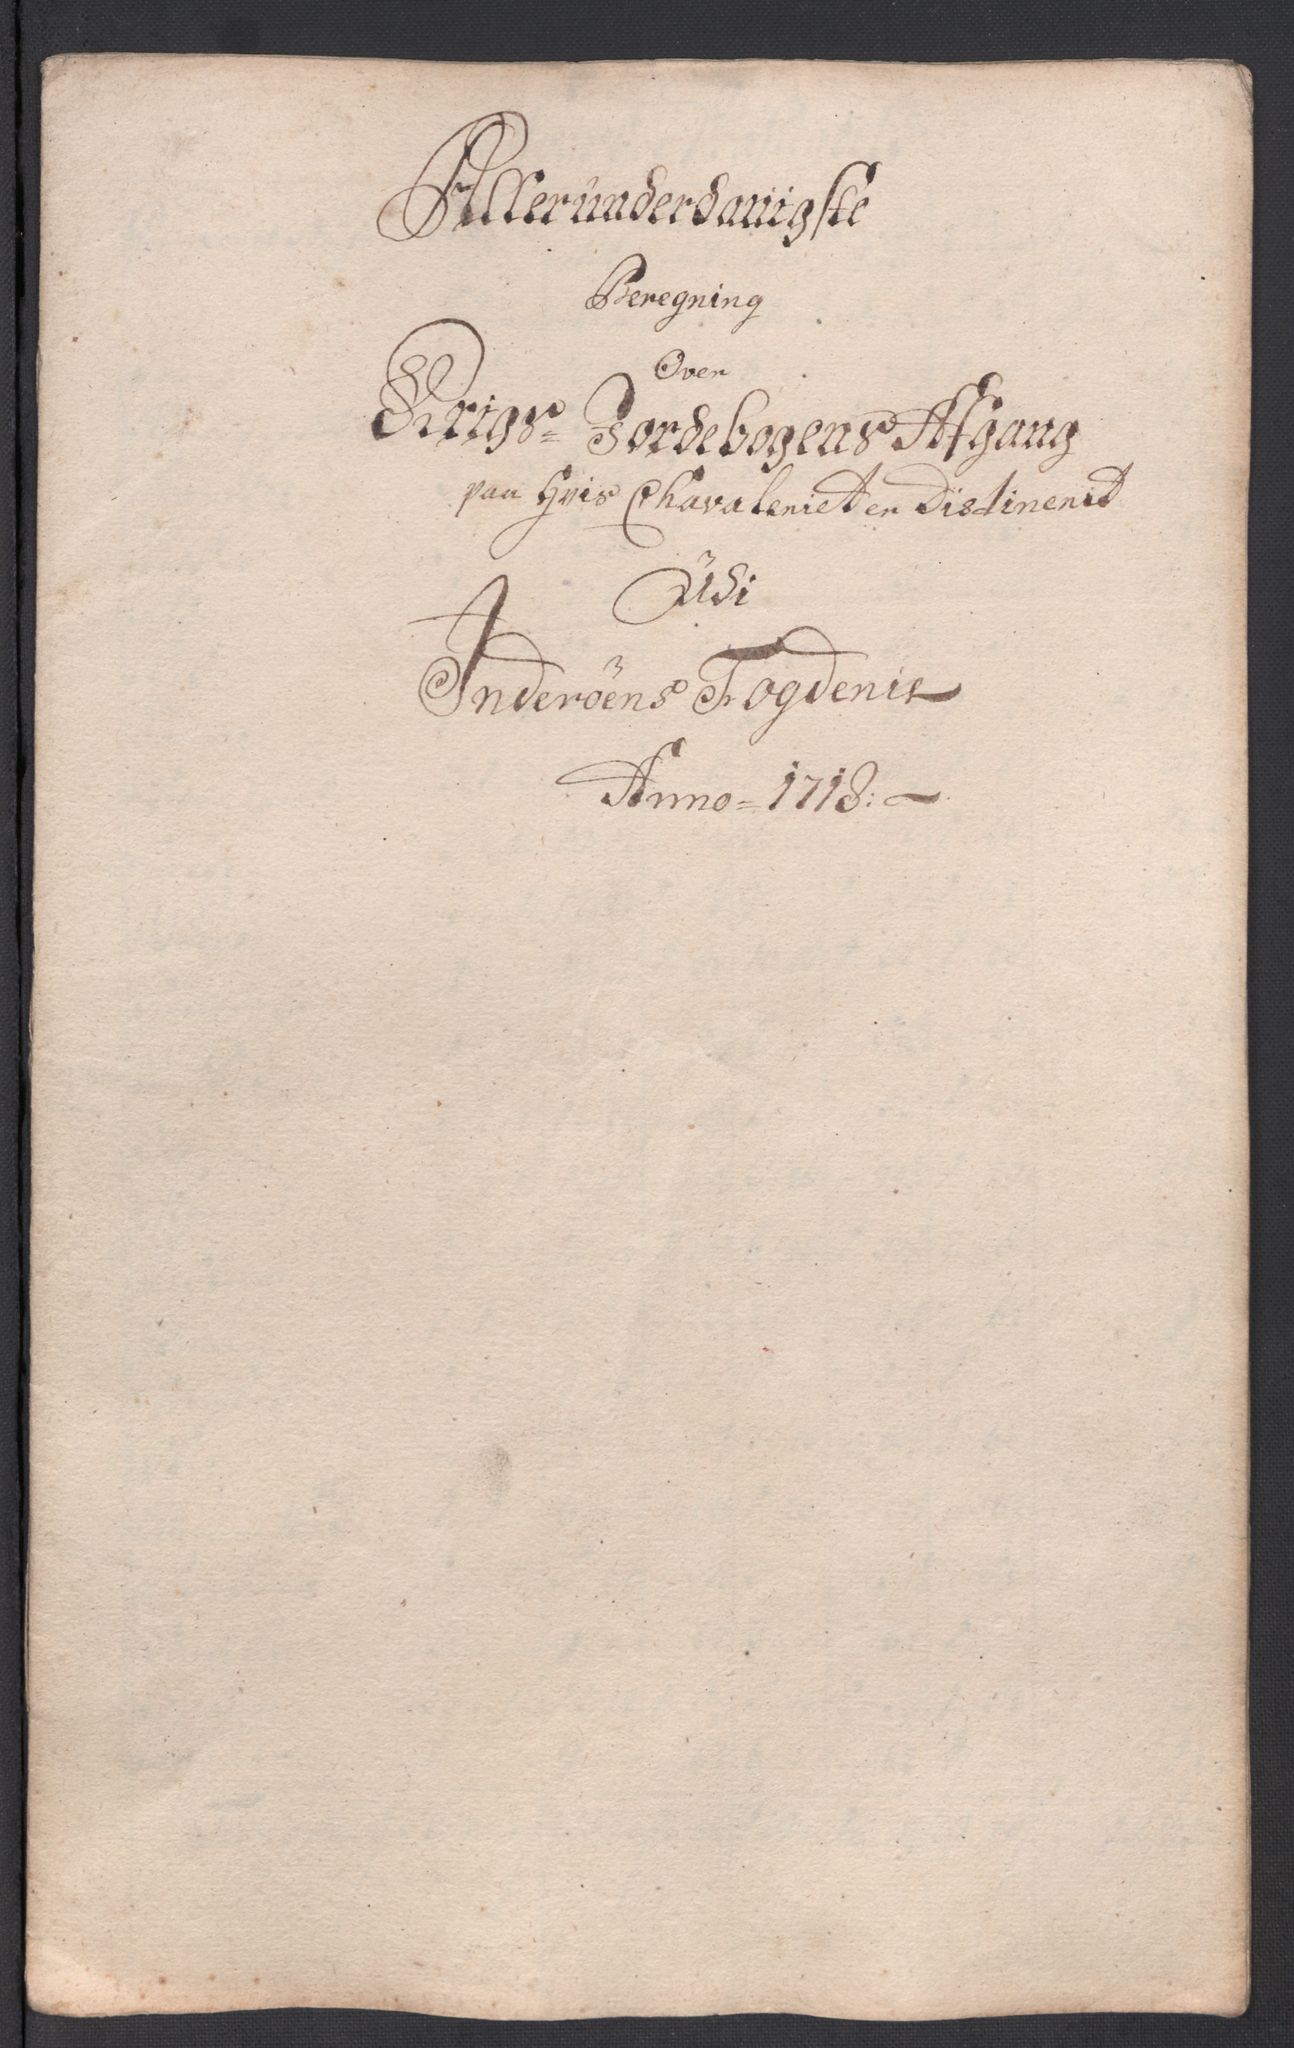 Alleründerdanigste
Beregning
Over
Krigs= Jordebogens Afgang
paa Hvis Chavaleriet er Distinerit
Üdi
Inderöens Fogderie
Anno = 1718: